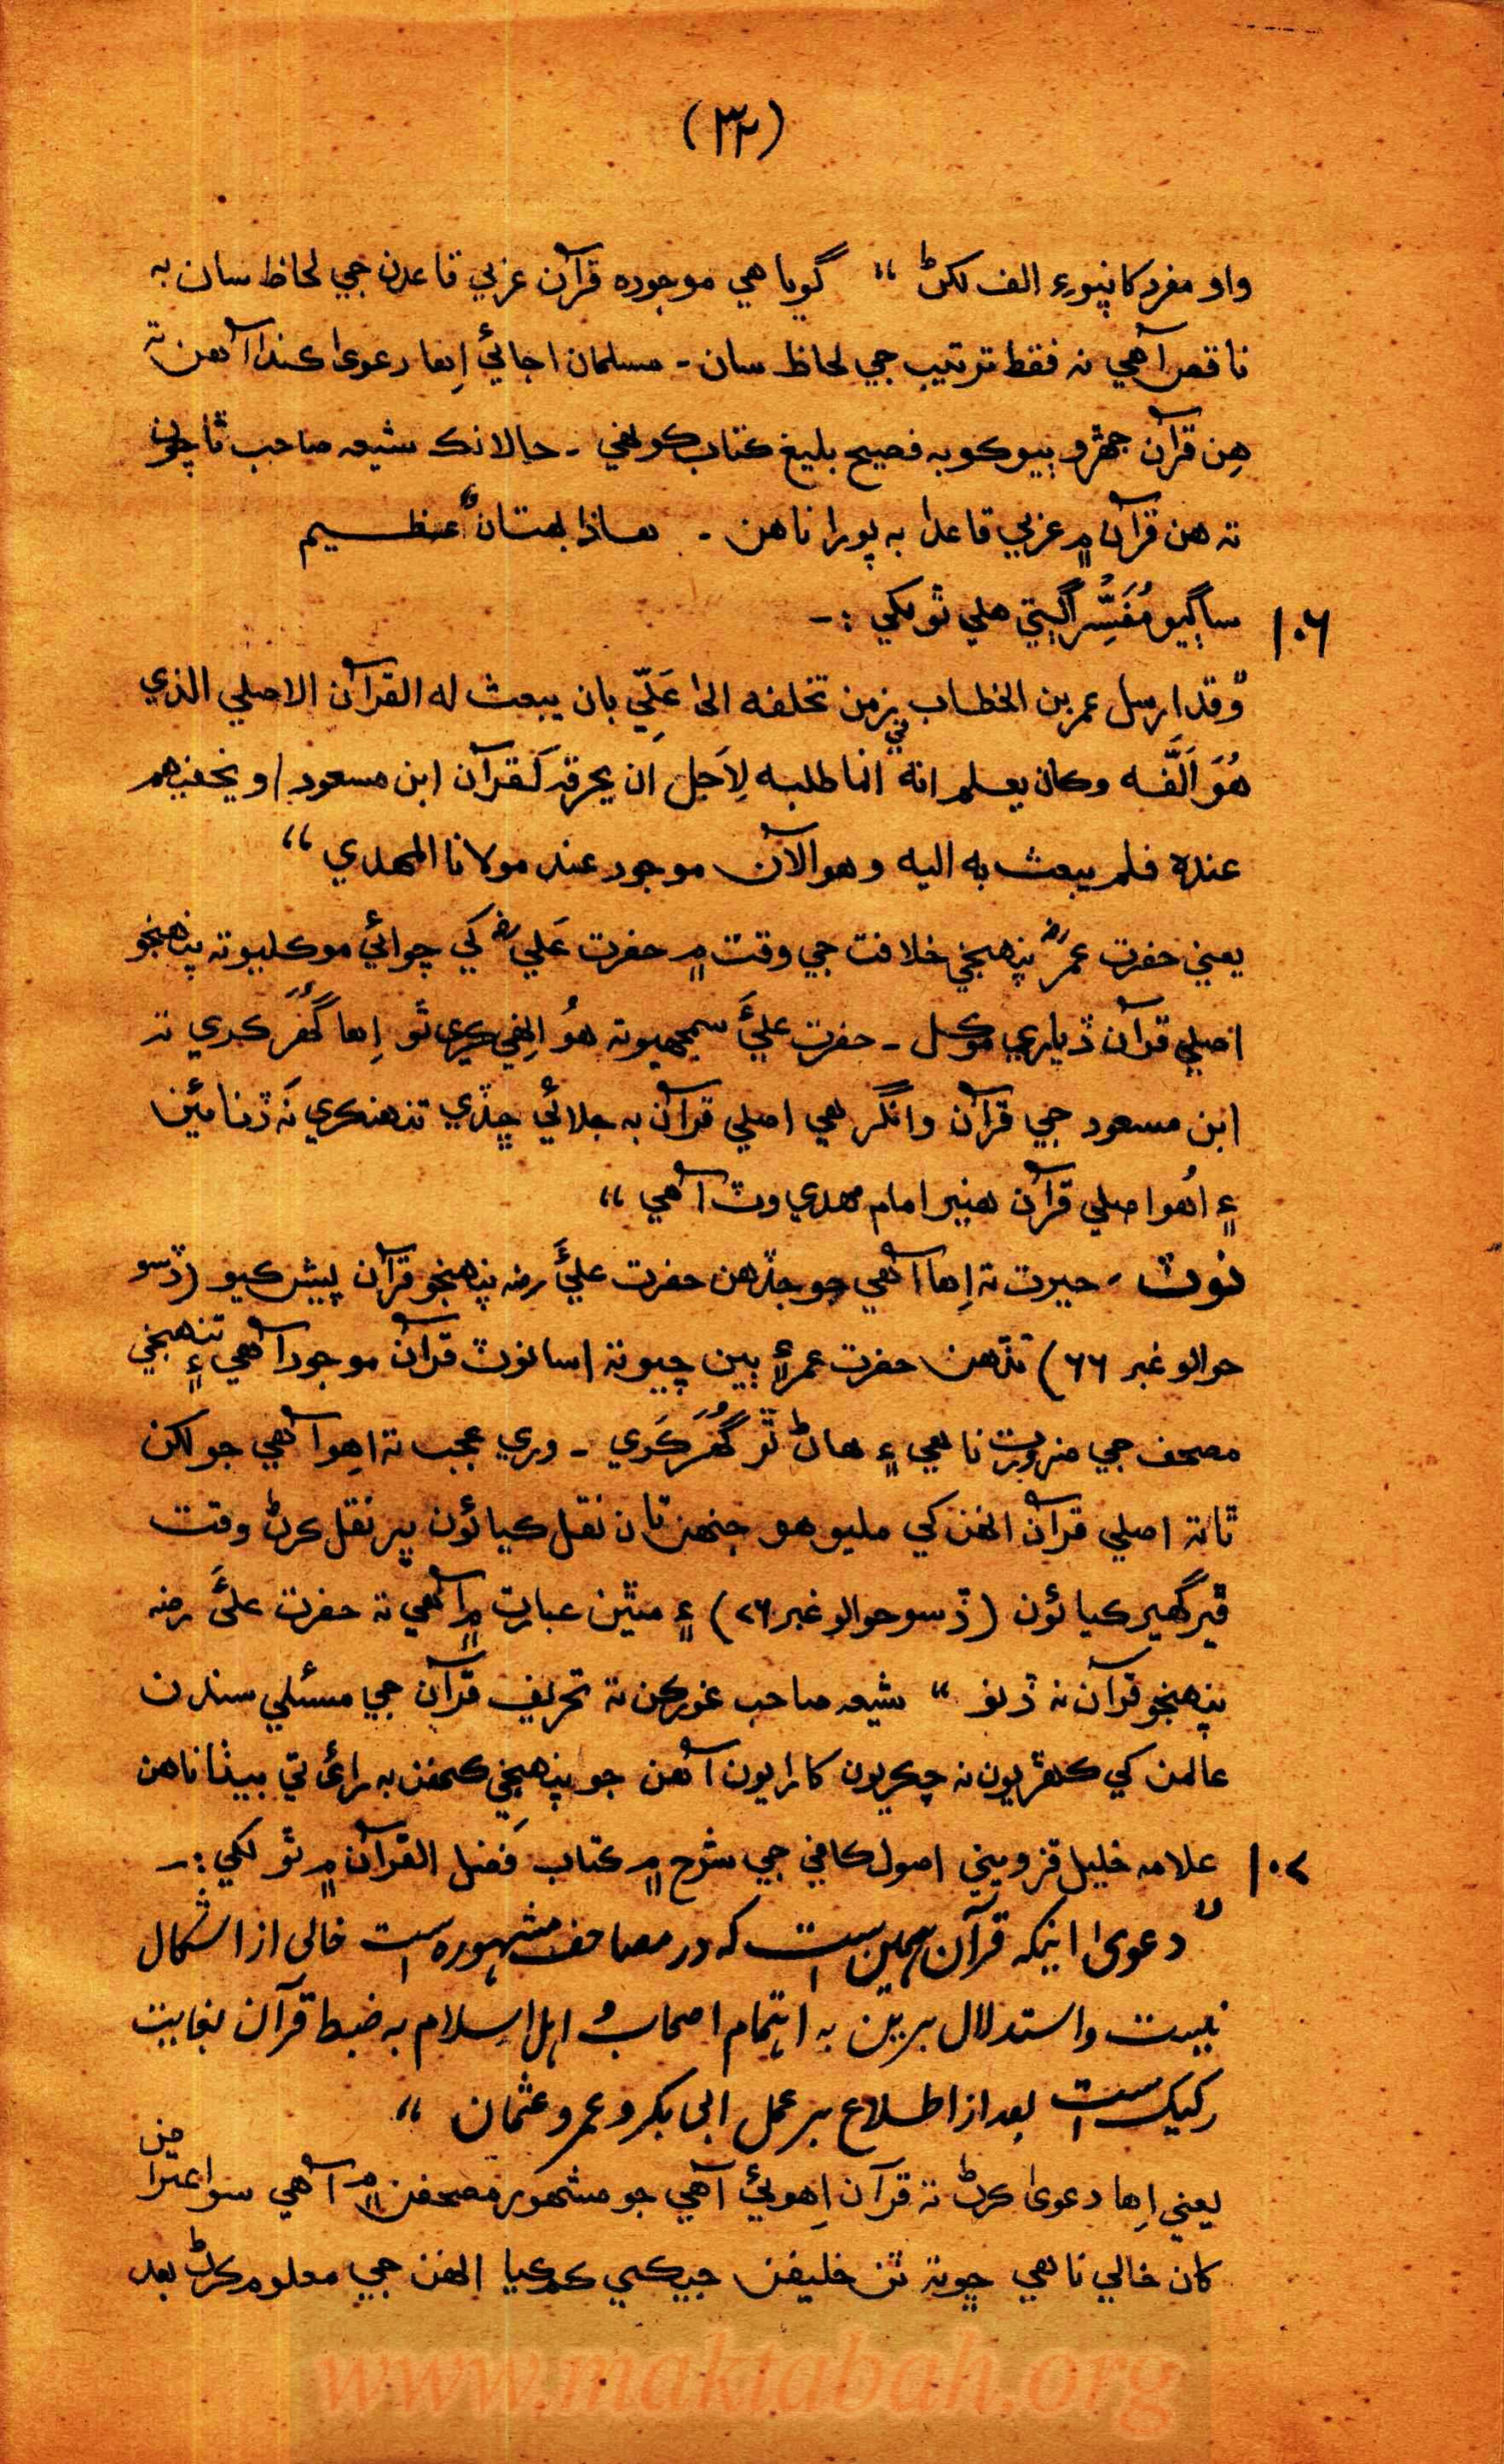 (٣٢)
واو مفرد کانپوءِ الف لکڻ “ گويا هي موجوده قرآن عربي قاعدن جي لحاظ سان به
ناقص آهي نہ فقط ترتيب جي لحاظ سان - مسلمان اجائي اِها دعويٰ ڪندا آهن تہ
هِن قرآن جهڙو ٻيو ڪو بہ فصيح بليغ ڪتاب ڪونهي - حالانڪ شيعه صاحب ٿا چون
تہ هن قرآن ۾ عربي قاعدا بہ پورا ناهن - هذا بهتانٌ عظيم
١٠٦ ساڳيو مُفَسِّر اڳتي هلي ٿو لکي :-
”وقد ارسل عمر بن الخطاب في زمن تخلفه الىٰ عَلِيّ بان يبعث له القرآن الاصلي الذي
هُوَ اَلَّفه وکان يعلم انهٗ انما طلبه لِاَجل ان يحرقه کقرآن ابن مسعود او يخفيهم
عنده فلم يبعث به اليه وهو الآن موجود عند مولانا المهدي “
يعني حضرت عمر رض پنهنجي خلافت جي وقت ۾ حضرت عَلي رض کي چوائي موڪليو تہ پنهنجو
اصلي قرآن ڏياري موڪل - حضرت عليَّ سمجهيو تہ هُو اِنهي ڪري ٿو اِها گُهُر ڪري تہ
ابن مسعود جي قرآن وانگر هي اصلي قرآن بہ جلائي ڇڏي تنهنڪري نَہ ڏنائين
۽ اُهو اصلي قرآن هينئر امام مهدي وٽ آهي “
نوٽ - حيرت تہ اِها آهي جو جڏهن حضرت عليَّ رضه پنهنجو قرآن پيش ڪيو (ڏسو
حوالو نمبر ٦٦) تڏهن حضرت عمر ۽ ٻين چيو تہ اسانوٽ قرآن موجود آهي ۽ تنهنجي
مصحف جي ضرورت ناهي ۽ هاڻ ٿو گُهُر ڪَري - وري عجب تہ اِهو آهي جو لکن
ٿا تہ اصلي قرآن انهن کي مليو هو جنهن تان نقل ڪيائون پر نقل ڪرڻ وقت
ڦير گهير ڪيائون (ڏسو حوالو نمبر ٢٦) ۽ مٿين عبارت ۾ آهي تہ حضرت عليَّ رضه
پنهنجو قرآن نہ ڏنو “ شيعه صاحب غور ڪن تہ تحريف قرآن جي مسئلي سندن
عالمن کي ڪهڙيون نہ چڪريون کارايون آهن جو پنهنجي ڪنهن بہ راءِ تي بيٺا ناهن
١٠٧ علامه خليل قزويني اصول ڪافي جي شرح ۾ ڪتاب فَضل القرآن ۾ ٿو لکي :-
”دعویٰ اینکه قرآن همین است که در مصاحف مشهوره است خالی از اشکال
نیست و استدلال برین به اهتمام اصحاب و اہل اسلام به ضبط قرآن بغایت
رکیک است بعد از اطلاع بر عمل ابی بکر و عمر و عثمان “
يعني اِها دعويٰ ڪرڻ تہ قرآن اِهوئي آهي جو مشهور مصحفن ۾ آهي سو اعتراض
کان خالي ناهي ڇو تہ ٽن خليفن جيڪي ڪم ڪيا انهن جي معلوم ڪرڻ بعد
www.maktabah.org